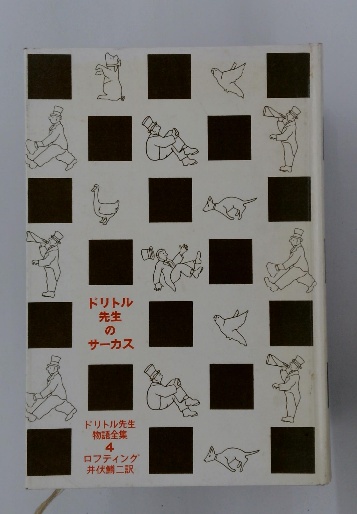 ドリトル
先生
の
サーカス
ドリトル先生
物語全集
4
ロフティング
井伏鱒二訳